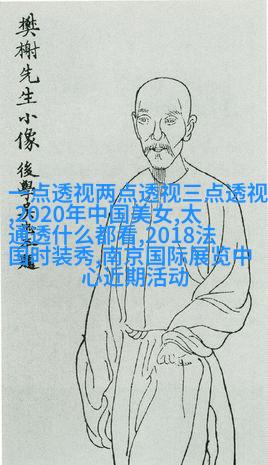 樊榭先生小像
後學
一点透视两点透视三点透视
,2020年中国美女,太
通透什么都看,2018法
国时装秀,南京国际展览中
心近期活动